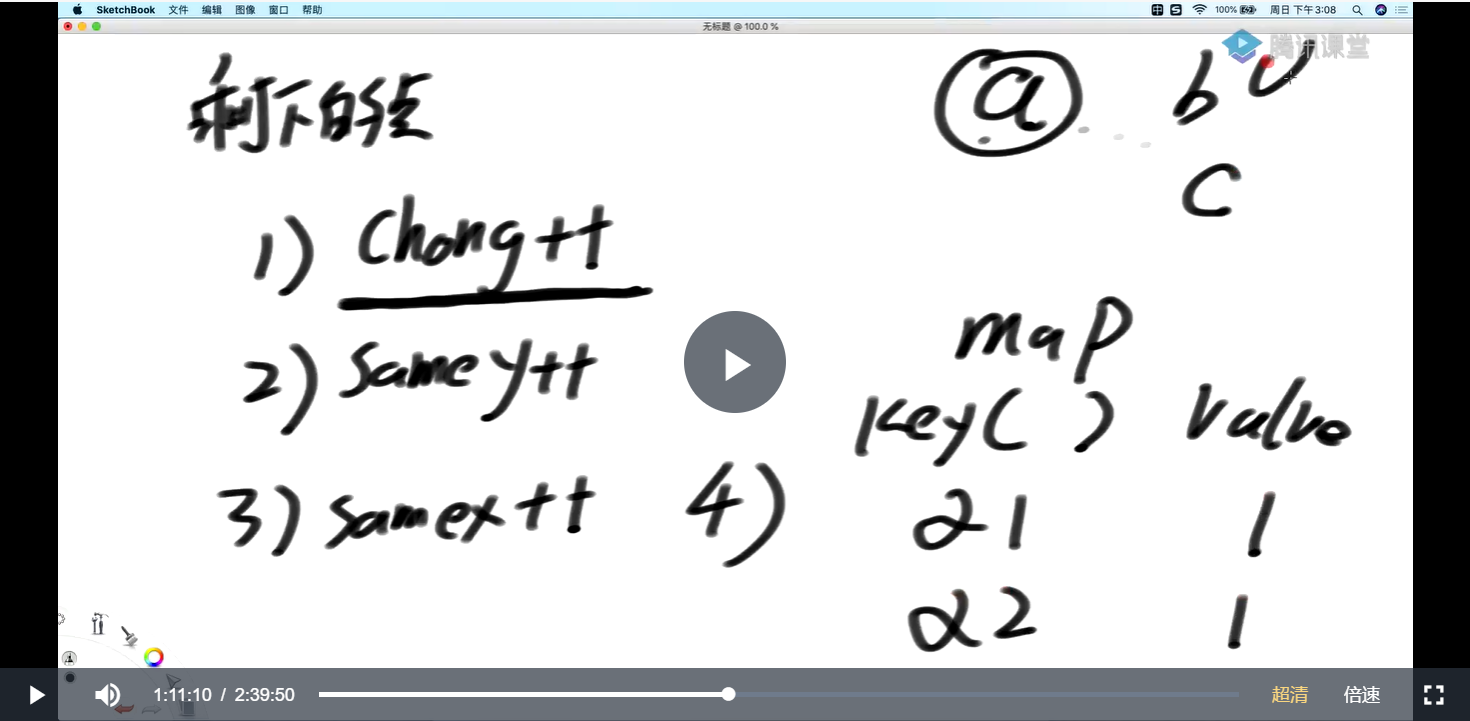 SketchBook 文件 编辑 图像 窗口 帮助 100% 周日 下午3:08
无标题 @ 100.0 %
腾讯课堂
剩下的点
a b
c
1) Chong++
2) samey++
3) samex++
map
key( ) value
4) α1 1
α2 1
1:11:10 / 2:39:50 超清 倍速